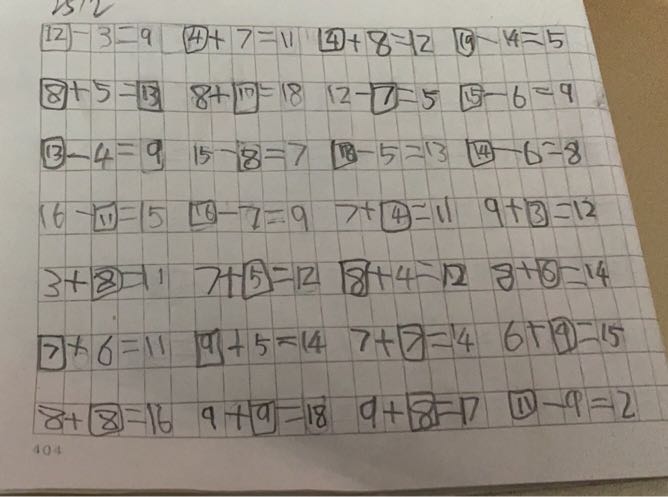 12-3=9 4+7=11 4+8=12 19-14=5
8+5=13 8+10=18 12-7=5 15-6=9
13-4=9 15-8=7 18-5=13 14-6=8
16-11=15 16-7=9 7+4=11 9+3=12
3+8=11 7+5=12 8+4=12 8+6=14
7+6=11 9+5=14 7+7=14 6+9=15
8+8=16 9+9=18 9+8=17 11-9=2
404